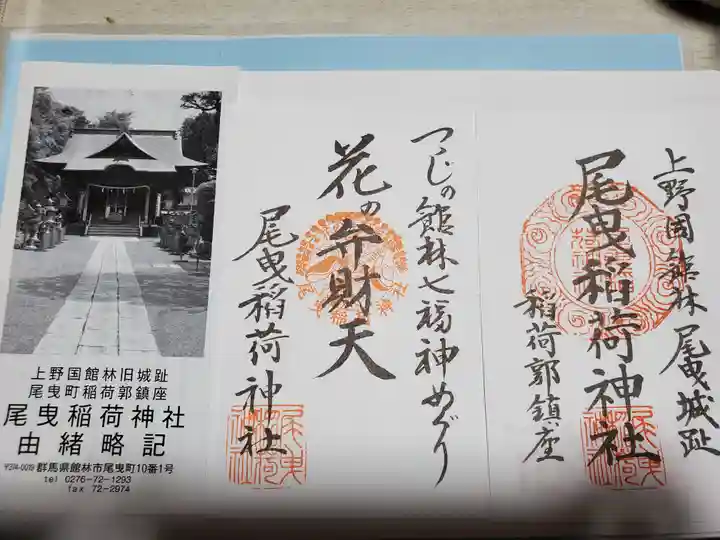 上野国館林 尾曳城趾
尾曳稲荷神社
稲荷郭鎮座
つゝじの館林七福神めぐり
花の弁財天
尾曳稲荷神社
上野国館林旧城趾
尾曳町稲荷郭鎮座
尾曳稲荷神社
由緒略記
〒374-0019 群馬県館林市尾曳町10番1号
tel 0276-72-1293
fax 72-2974